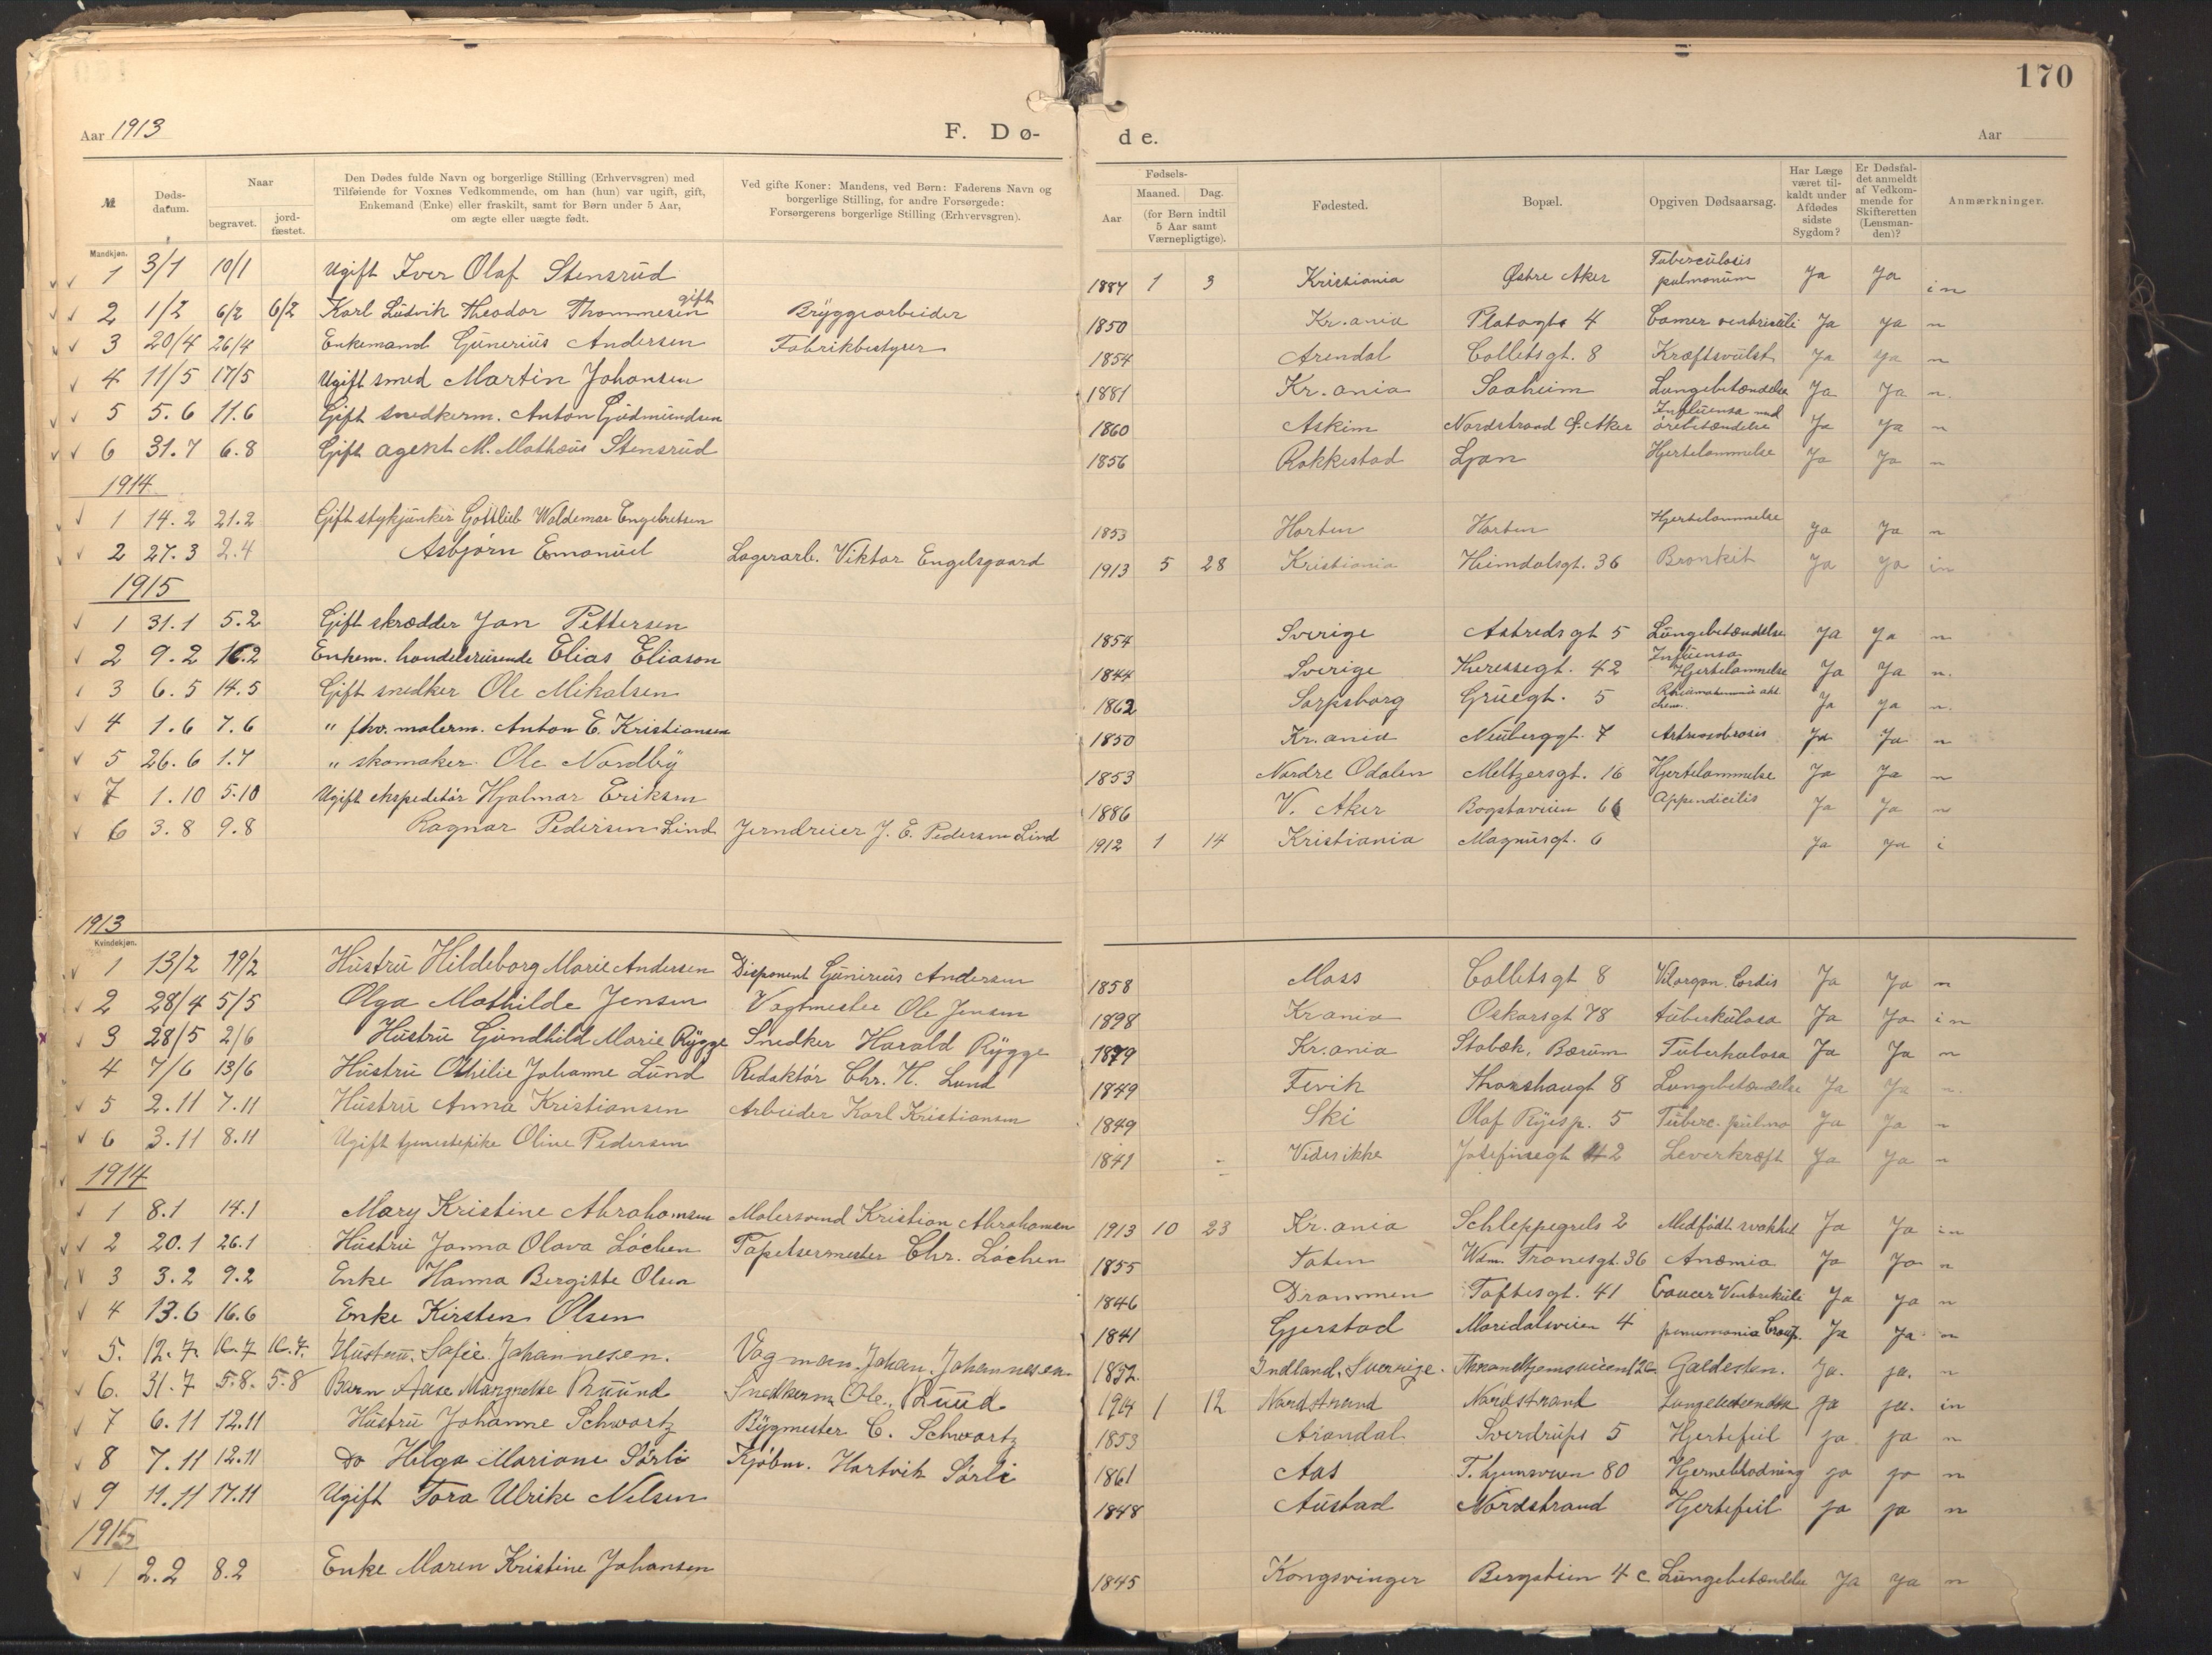 170
Aar 1913 F. Dø- de. Aar
№ Døds-datum. Naar begravet. jord-fæstet. Den Dødes fulde Navn og borgerlige Stilling (Erhvervsgren) med Tilføiende for Voxnes Vedkommende, om han (hun) var ugift, gift, Enkemand (Enke) eller fraskilt, samt for Børn under 5 Aar, om ægte eller uægte født. Ved gifte Koner: Mandens, ved Børn: Faderens Navn og borgerlige Stilling, for andre Forsørgede: Forsørgerens borgerlige Stilling (Erhvervsgren). Fødsels- Aar Maaned. Dag. (for Børn indtil 5 Aar samt Værnepligtige). Fødested. Bopæl. Opgiven Dødsaarsag. Har Læge været til-kaldt under Afdødes sidste Sygdom? Er Dødsfal-det anmeldt af Vedkom-mende for Skifteretten (Lensman-den)? Anmærkninger.
Mandkjøn.
1 3/1 10/1 Ugift Iver Olaf Stensrud 1887 1 3 Kristiania Østre Aker Tuberculosis pulmonum Ja Ja in
2 1/2 6/2 6/2 Karl Ludvik Theodor Thommesen gift Bryggearbeider 1850 Kr.ania Platougts 4 Ja Ja n
3 20/4 26/4 Enkemand Gunerius Andersen Fabrikbestyrer 1854 Arendal Colletsgt. 8 Kræftsvulst Ja Ja n
4 11/5 17/5 Ugift smed Martin Johansen 1881 Kr.ania Saaheim Lungebetændelse Ja Ja n.
5 5.6 11.6 Gift snedkerm. Anton Gudmundsen 1860 Askim Nordstrand Ø. Aker Influensa med ørebetændelse Ja Ja n
6 31.7 6.8 Gift agent M. Mathæus Stensrud 1856 Rakkestad Ljan Hjertelammelse Ja Ja n
1914
1 14.2 21.2 Gift stykjunker Gottlieb Waldemar Engebretsen 1853 Horten Horten Hjertelammelse Ja Ja n
2 27.3 2.4 Asbjørn Emanuel Lagerarb. Viktor Engelsgaard 1913 5 28 Kristiania Heimdalsgt. 36 Bronkit Ja Ja in
1915
1 31.1 5.2 Gift skrædder Jan Pettersen 1854 Sverige Astredsgt 5 Lungebetændelse Ja Ja n
2 9.2 16.2 Enkem. handelsreisende Elias Eliason 1844 Sverige Theresegt. 42 Influensa Hjertelammelse Ja Ja n.
3 6.5 14.5 Gift snedker Ole Mikalsen 1862 Sarpsborg Gruegt. 5 Ja Ja n.
4 1.6 7.6 " fhv. malerm. Anton E. Kristiansen 1850 Kr.ania Neuberggt. 7 Ja Ja n
5 26.6 1.7 " skomaker Ole Nordby 1853 Nordre Odalen Meltzersgt. 16 Hjertelammelse Ja Ja n
7 1.10 5.10 Ugift ekspeditør Hjalmar Eriksen 1886 V. Aker Bogstaveien 66 Appendicitis Ja Ja n
6 3.8 9.8 Ragnar Pedersen Lind Jerndreier J. E. Pedersen Lind 1912 1 14 Kristiania Magnusgt. 6 Ja Ja i
1913
Kvindekjøn.
1 13/2 19/2 Hustru Hildeborg Marie Andersen Disponent Gunirius Andersen 1858 Moss Colletsgt 8 Vit.organ. Cordis Ja Ja n
2 28/4 5/5 Olga Mathilde Jensen Vagtmester Ole Jensen 1898 Kr ania Oskarsgt 78 tuberkulosa Ja Ja in
3 28/5 2/6 Hustru Gundhild Marie Rygge Snedker Harald Rygge 1879 Kr.ania Stabæk, Bærum Tuberkulosa Ja Ja n
4 7/6 13/6 Hustru Othilie Johanne Lund Redaktør Chr. H. Lund 1849 Fevik Thorshaugt 8 Lungebetændelse Ja Ja n.
5 2.11 7.11 Hustru Anna Kristiansen Arbeider Karl Kristiansen 1849 Ski Olaf Ryesp. 5 Tuberc. pulmo Ja Ja n
6 3.11 8.11 Ugift tjenestepike Oline Pedersen 1841 Vides ikke Josefinegt 42 Leverkræft Ja Ja n
1914
1 8.1 14.1 Mary Kristine Abrahamsen Malersvend Kristian Abrahamsen 1913 10 23 Kr.ania Schleppegrels 2 Medfødt svakhet Ja Ja in
2 20.1 26.1 Hustru Janna Olava Løchen Tapetsermester Chr. Løchen 1855 Toten Wdm. Tranesgt. 36 Anæmia Ja Ja n
3 3.2 9.2 Enke Hanna Bergitte Olsen 1846 Drammen Toftesgt. 41 Cancer Ventrikuli Ja Ja n
4 13.6 16.6 Enke Kirsten Olsen 1841 Gjerstad Maridalsveien 4 pneumonia Croup. Ja Ja n
5. 12.7. 16.7 16.7. Hustru. Sofie. Johannesen. Vogman. Johan. Johannesen. 1852. Indland. Sverrige. Throndhjemsveien 12c Galdesten. Ja. ja. n
6. 31.7 5.8. 5.8 Barn Aase Margrethe Ruud Snedkerm. Ole. Ruud 1914 1 12 Nordstrand Nordstrand Lungebetændelse Ja ja. in
7 6.11 12.11 Hustru Johanne Schwartz Bygmester C. Schwartz 1853 Arendal Sverdrups 5 Hjertefeil ja ja n
8 7.11 12.11 Do Helga Mariane Sørli Kjøbm. Hartvik Sørli 1861 Aas T. hjemsveien 80 Hjerneblødning ja ja n
9 11.11 17.11 Ugift Tora Ulrike Nelsen 1848 Austad Nordstrand Hjertefeil ja ja n
1915
1 2.2 8.2 Enke Maren Kristine Johansen 1845 Kongsvinger Bergstien 4 c Lungebetændelse Ja Ja n